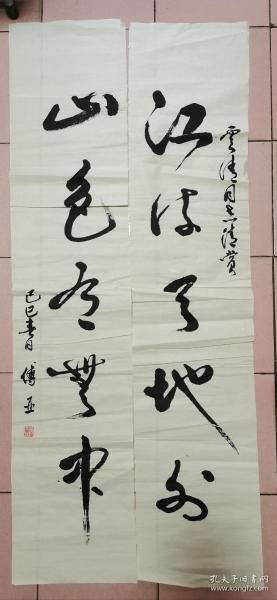 雲清同志清赏
江流天地外
山色有無中
己巳春月 傅亚
孔夫子旧书网